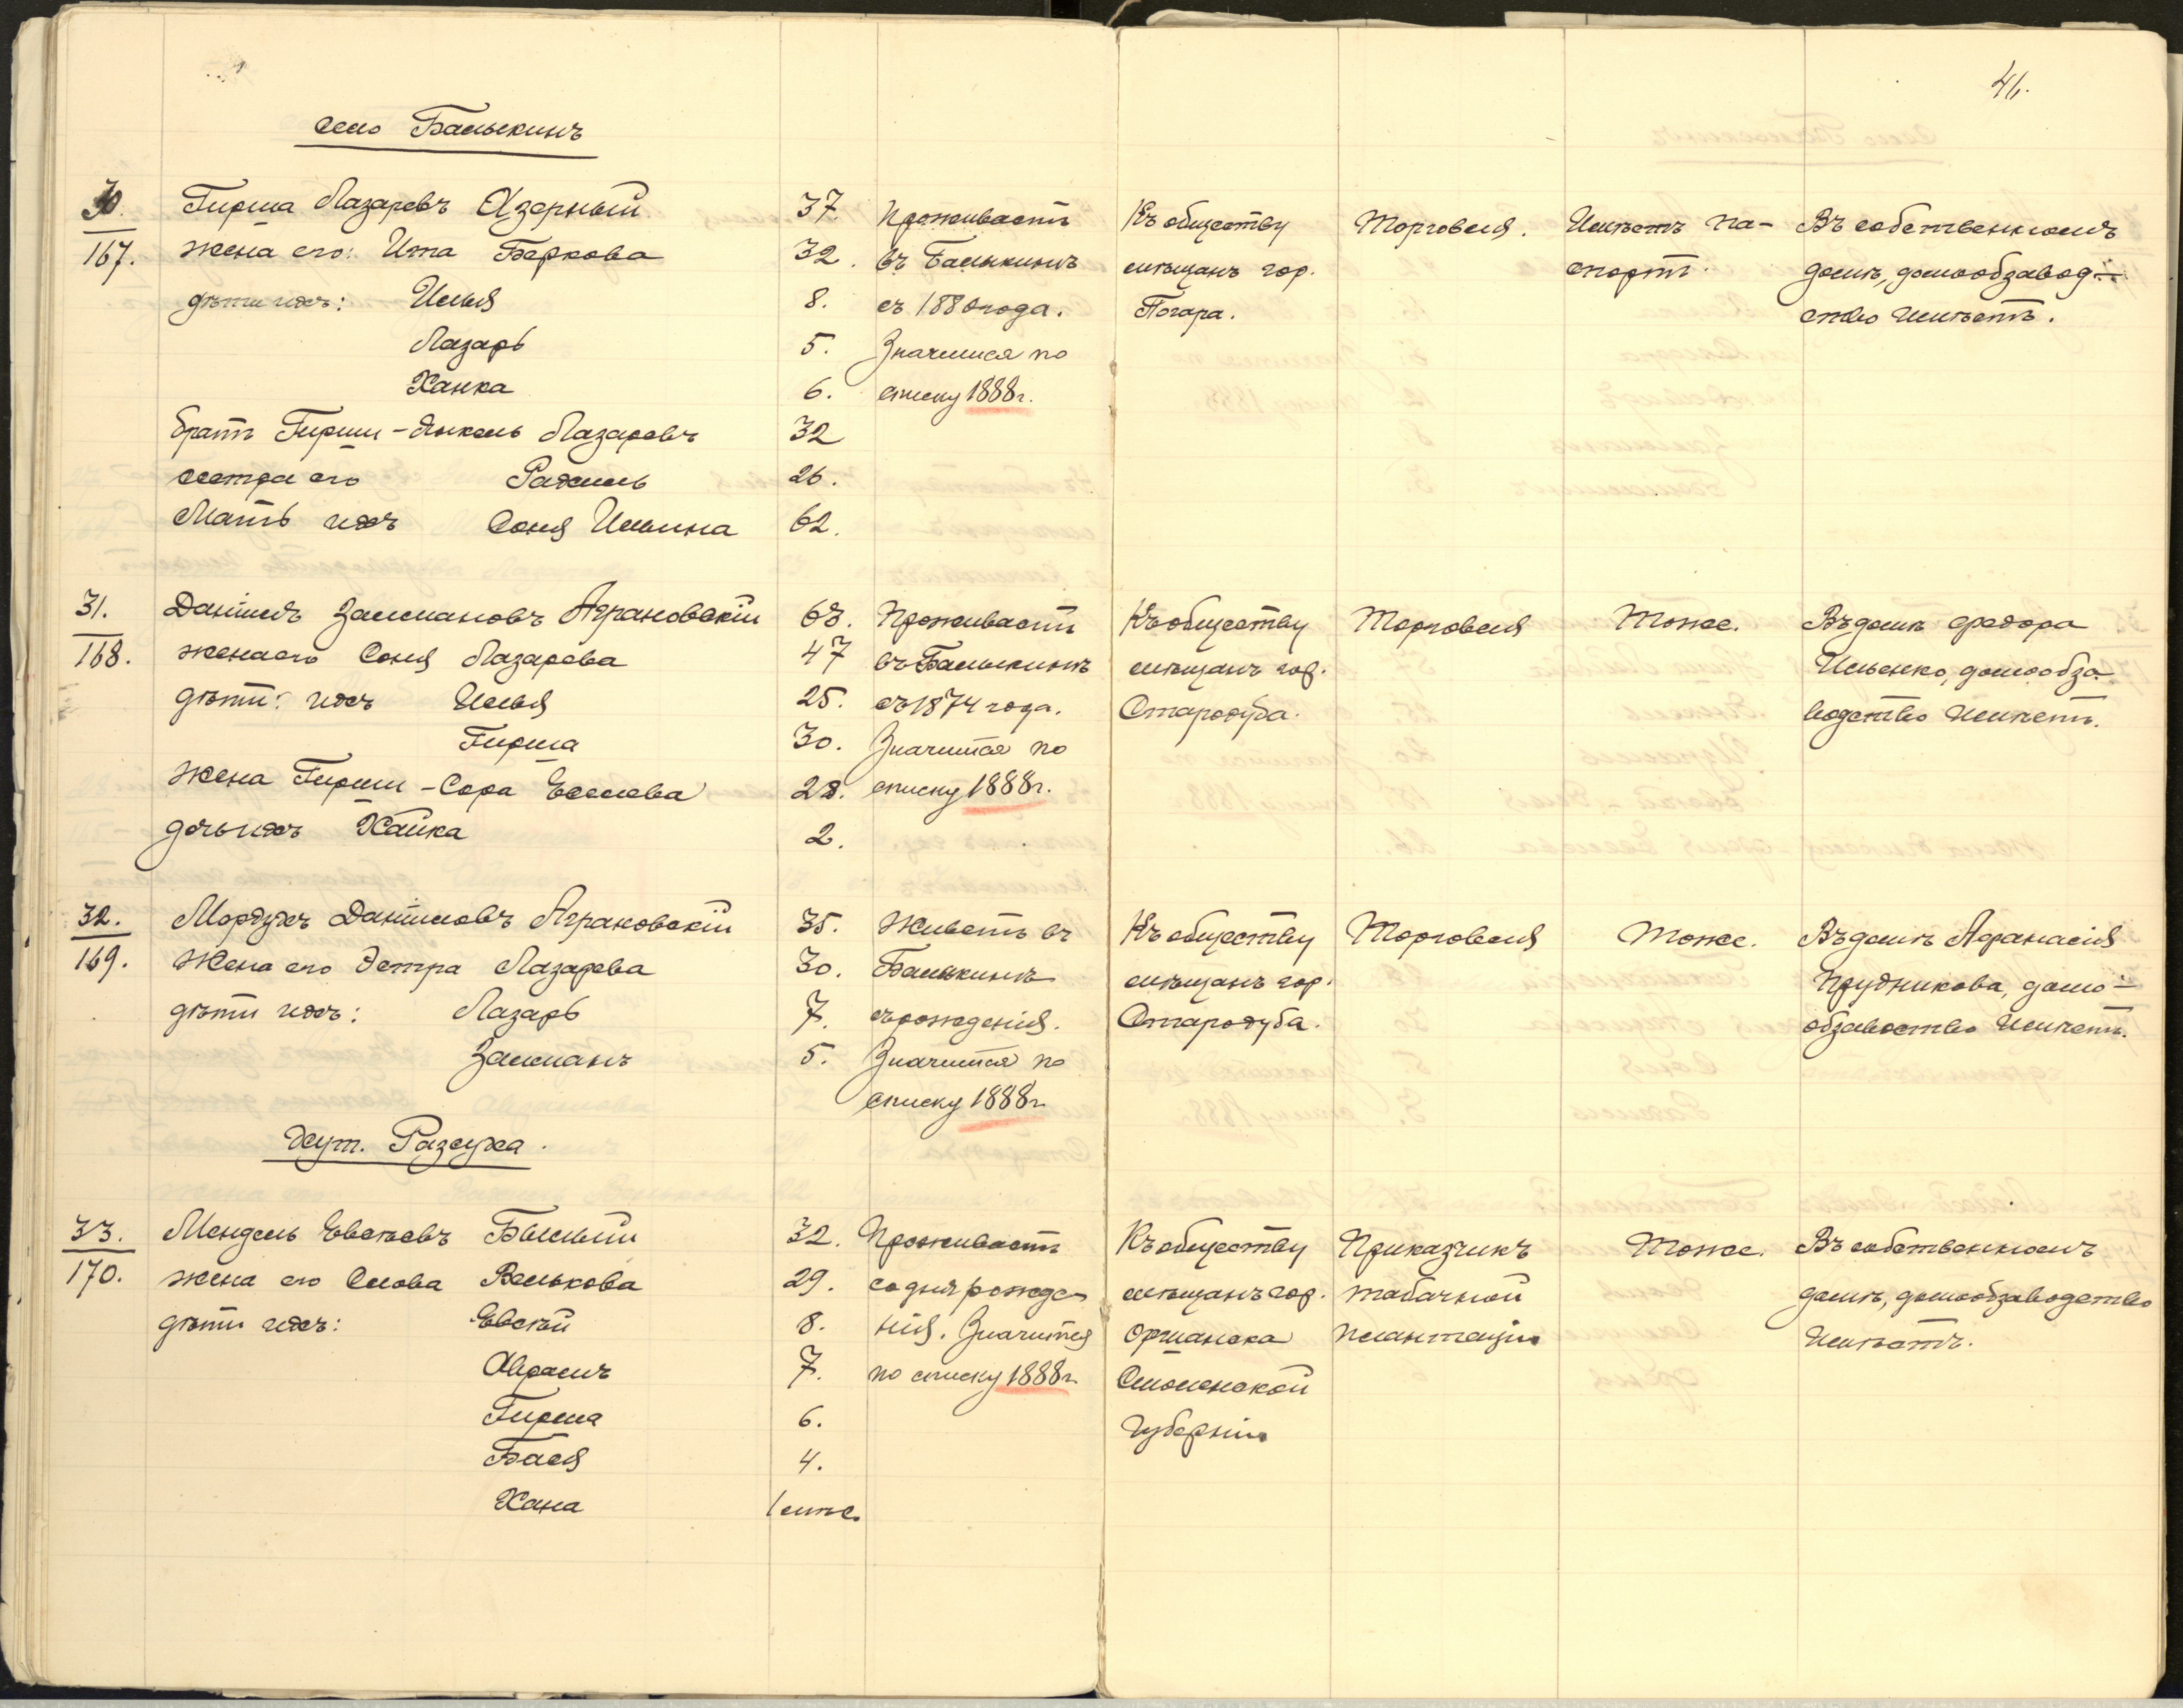 41.
село Балыкинъ
30. Гирша Лазаревъ Озерный 37. Проживаетъ Къ обществу Торговля. Имѣетъ па- Въ собственномъ
167. жена его: Ита Беркова 32. въ Балыкинѣ мѣщанъ гор. спортъ. домѣ, домообзавод-
дѣти ихъ: Илья 8. съ 1880 года. Погара. ство имѣетъ.
Лазарь 5. Значится по
Ханка 6. списку 1888 г.
братъ Гирши - Янкель Лазаревъ 32
сестра его Рахиль 26.
Мать ихъ Соня Ильина 62.
31. Данiилъ Залмановъ Аграновскiй 68. Проживаетъ Къ обществу Торговля Тоже. Въ домѣ Федора
168. жена его Соня Лазарева 47 въ Балыкинѣ мѣщанъ гор. Ильенко, домообза-
дѣти: ихъ Илья 25. съ 1874 года. Стародуба. водство имѣетъ.
Гирша 30. Значится по
Жена Гирши - Сора Евелева 28. списку 1888 г.
дочь ихъ Хайка 2.
32. Мордухъ Данiиловъ Аграновскiй 35. Живетъ въ Къ обществу Торговля Тоже. Въ домѣ Афанасiя
169. Жена его Эстра Лазарева 30. Балыкинѣ мѣщанъ гор. Прудникова, домо-
дѣти ихъ: Лазарь 7. съ рожденiя. Стародуба. обзавоство имѣетъ.
Залманъ 5. Значится по
списку 1888 г.
Хут. Разсуха.
33. Мендель Евсѣевъ Бѣлый 32. Проживаетъ Къ обществу Приказчикъ Тоже. Въ собственномъ
170. жена его Слова Велькова 29. со дня рожде- мѣщанъ гор. табачной домѣ, домообзаводство
дѣти ихъ: Евсѣй 8. нiя. Значится Оршанска плантацiи имѣетъ.
Абрамъ 7. по списку 1888 г. Смоленской
Гирша 6. Губернiи
Бася 4.
Хана 1 мѣс.